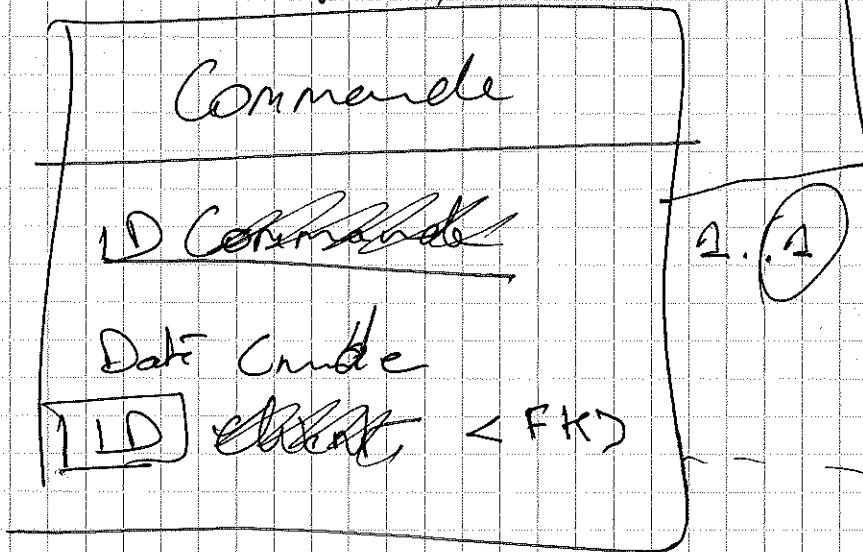 Commande
ID Commande
1..1
Date Cmde
ID Client <FK>